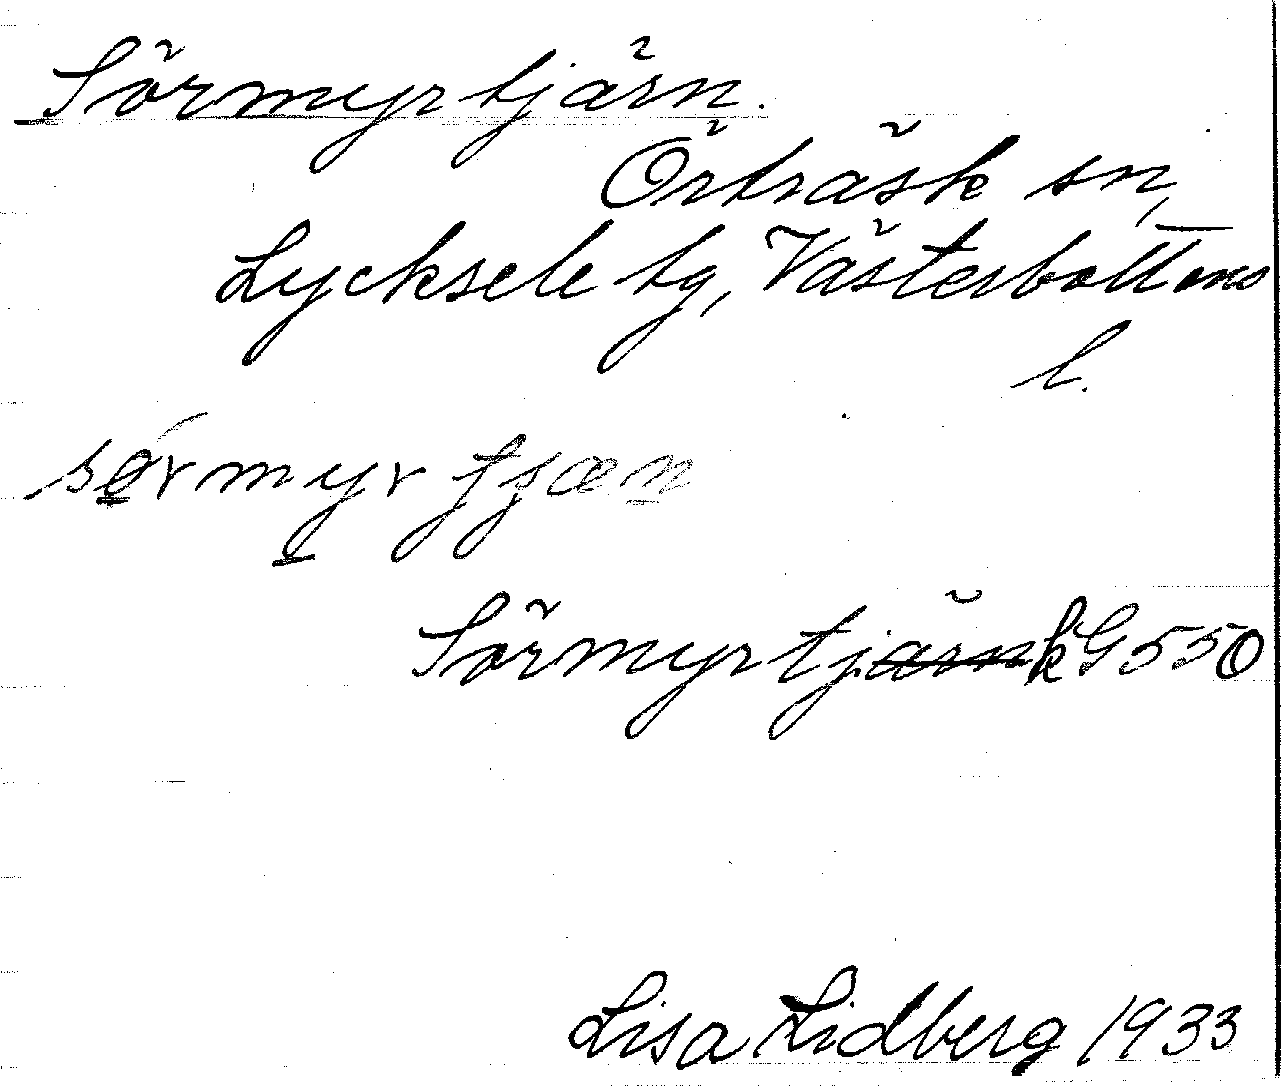 Sörmyrtjärn.
Örträsk sn,
Lycksele tg, Västerbottens
l.
sørmyrtjæn
Sörmyrtjärn k G550
Lisa Lidberg 1933